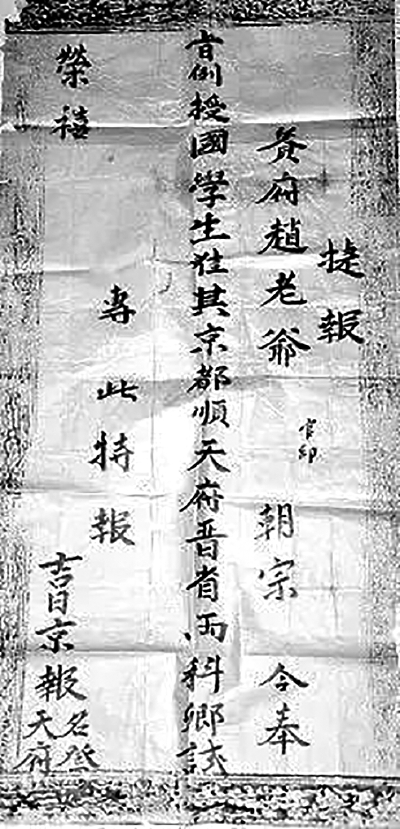 捷報
貴府趙老爺官印朝宗今奉
旨例授國學生准其京都順天府晋省兩科鄉試
專此特報
榮禧
吉日京報名登天府